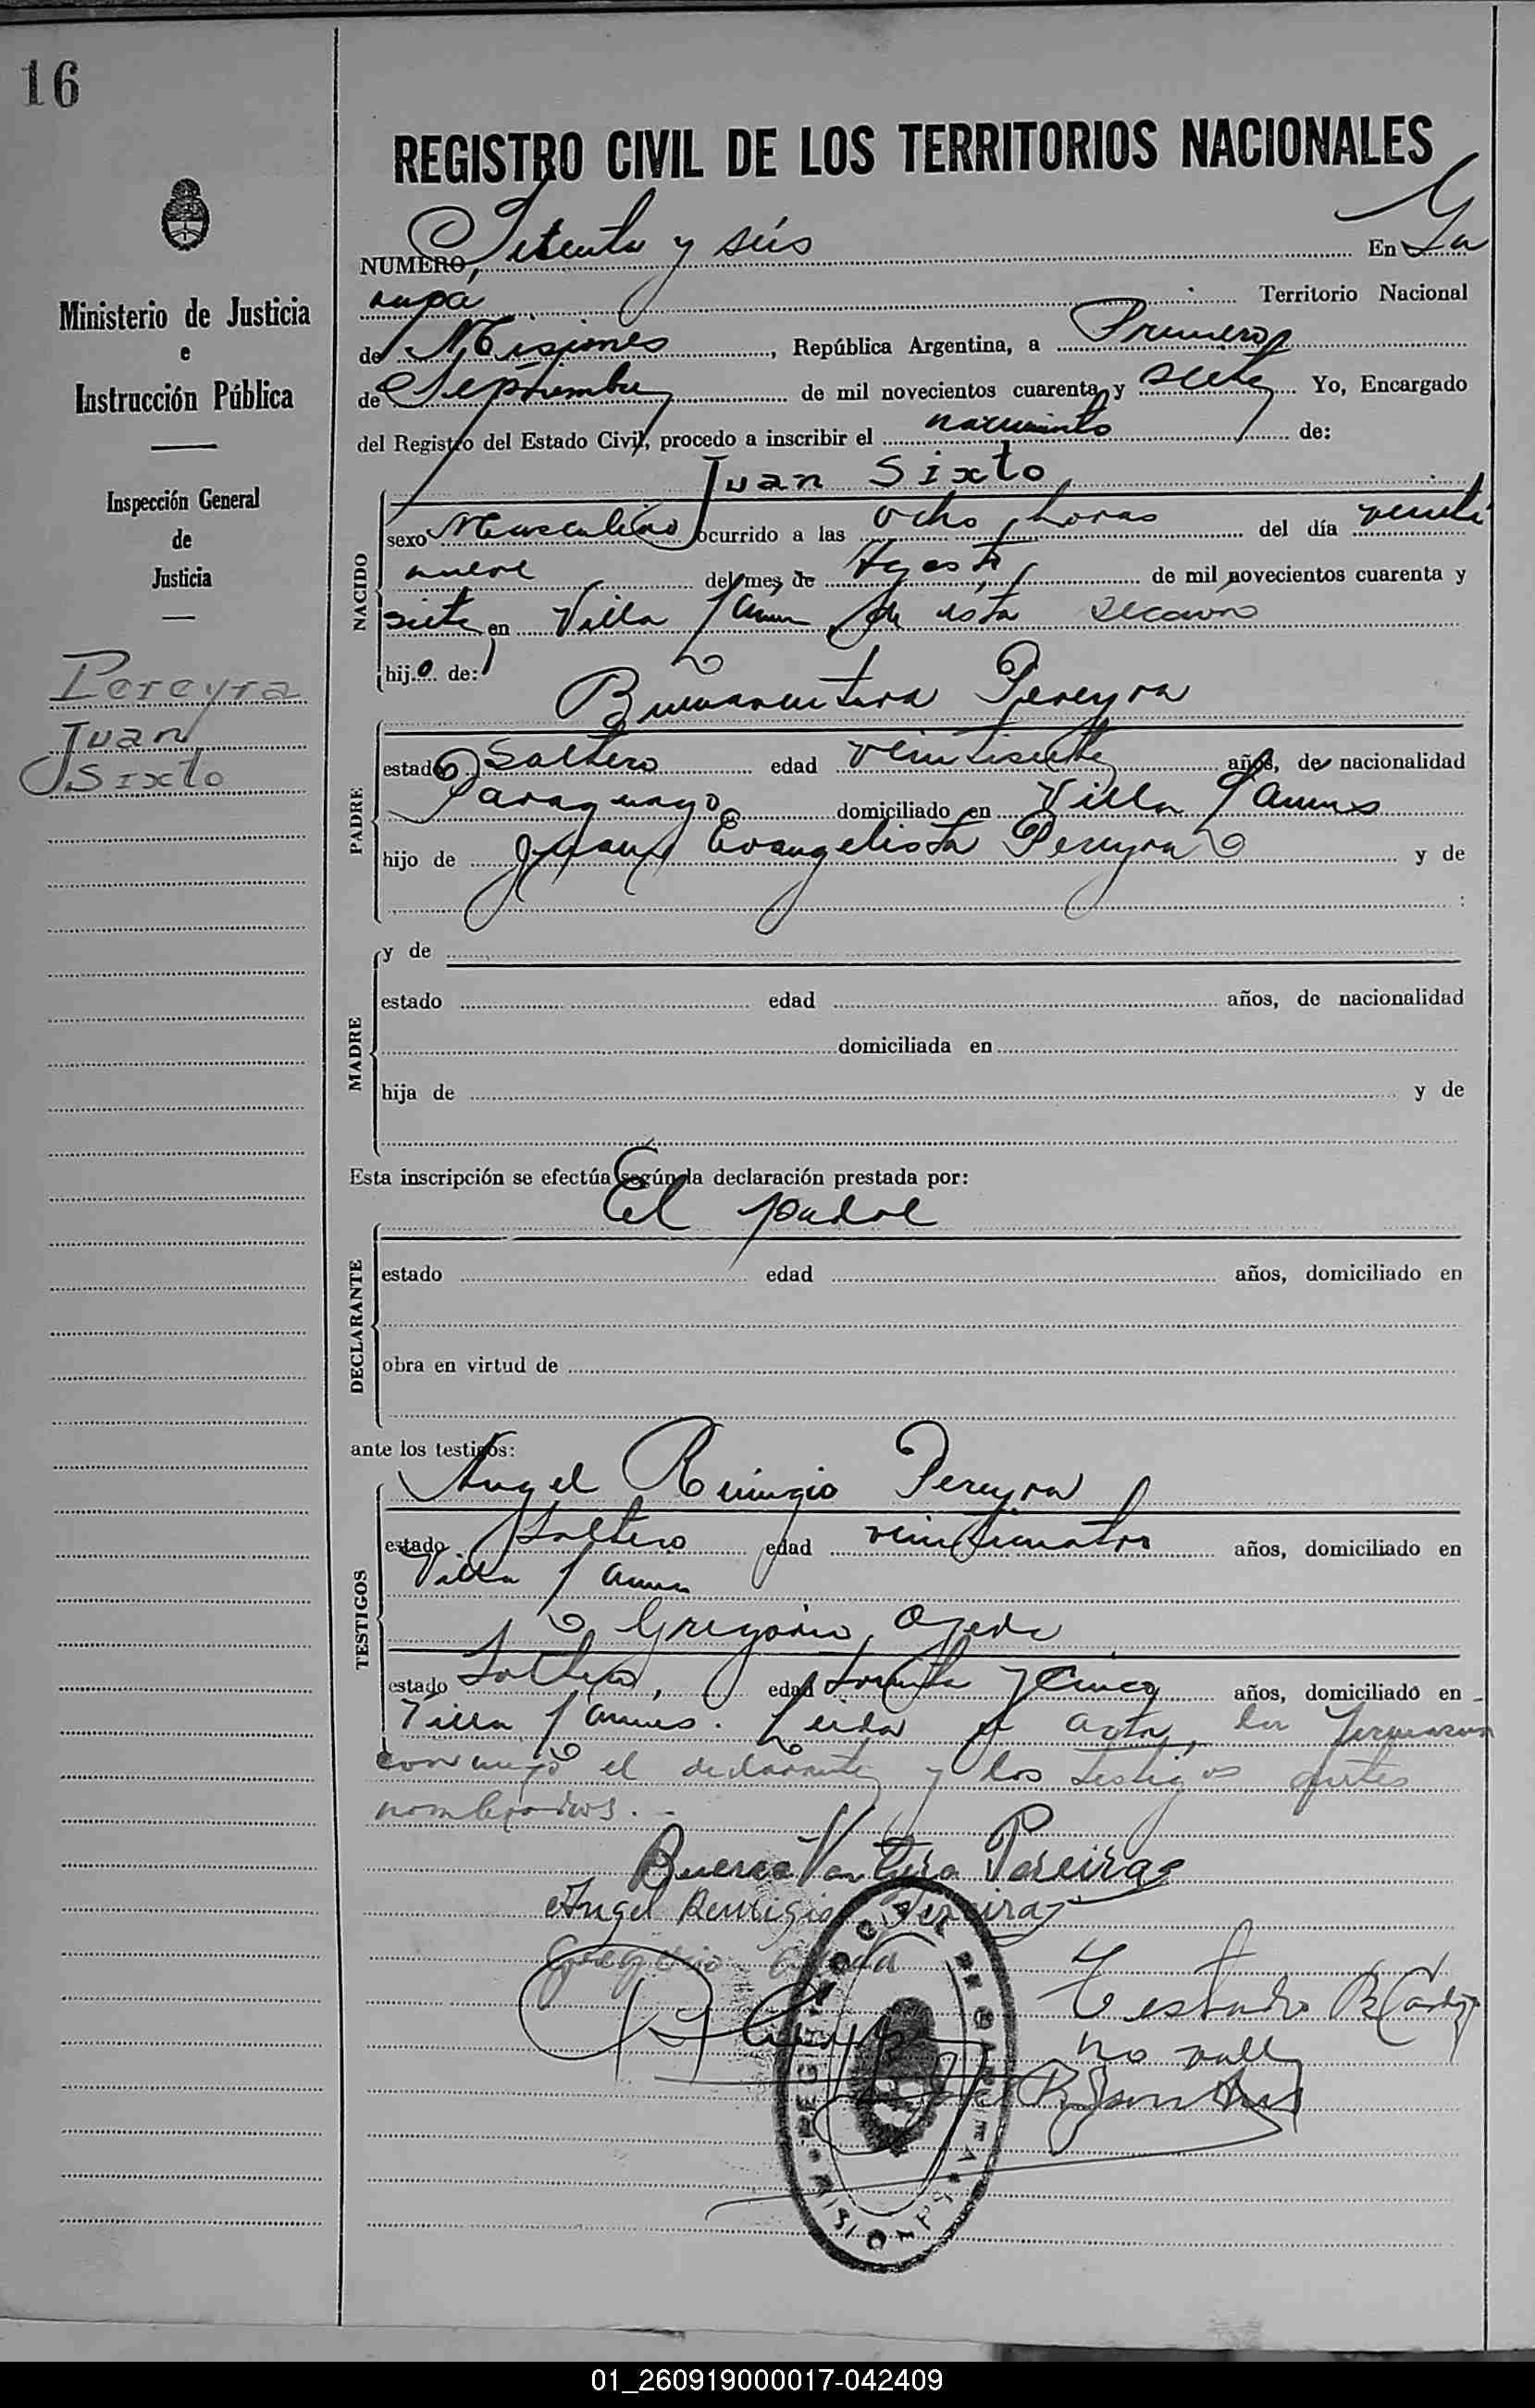 16
REGISTRO CIVIL DE LOS TERRITORIOS NACIONALES
NUMERO, Setenta y séis En Ga
rupá Territorio Nacional
de Misiones, República Argentina, a Primero
de Septiembre de mil novecientos cuarenta y siete Yo, Encargado
del Registro del Estado Civil, procedo a inscribir el nacimiento de:
Juan Sixto
NACIDO
sexo Masculino ocurrido a las ocho horas del día veinti
nueve del mes de Agosto de mil novecientos cuarenta y
siete en Villa de esta sección
hijo de:
Buenaventura Pereyra
PADRE
estado Soltero edad veintisiete años, de nacionalidad
Paraguayo domiciliado en Villa
hijo de Juan Evangelista Pereyra y de
MADRE
y de
estado edad años, de nacionalidad
domiciliada en
hija de y de
Esta inscripción se efectúa según la declaración prestada por:
El padre
DECLARANTE
estado edad años, domiciliado en
obra en virtud de
ante los testigos:
Angel Remigio Pereyra
TESTIGOS
estado Soltero edad veinticuatro años, domiciliado en
Villa
Gregorio Ojeda
estado Soltero, edad y cinco años, domiciliado en
Villa Leida el acta, la firmaron
conmigo el declarante y los testigos antes
nombrados.
BuenaVentura Pereira
Angel Remigio Pereira
Gregorio Ojeda
Testado
no vale
REGISTRO CIVIL DE GARUPA
MISIONES
Ministerio de Justicia
e
Instrucción Pública
Inspección General
de
Justicia
Pereyra
Juan
Sixto
01_260919000017-042409